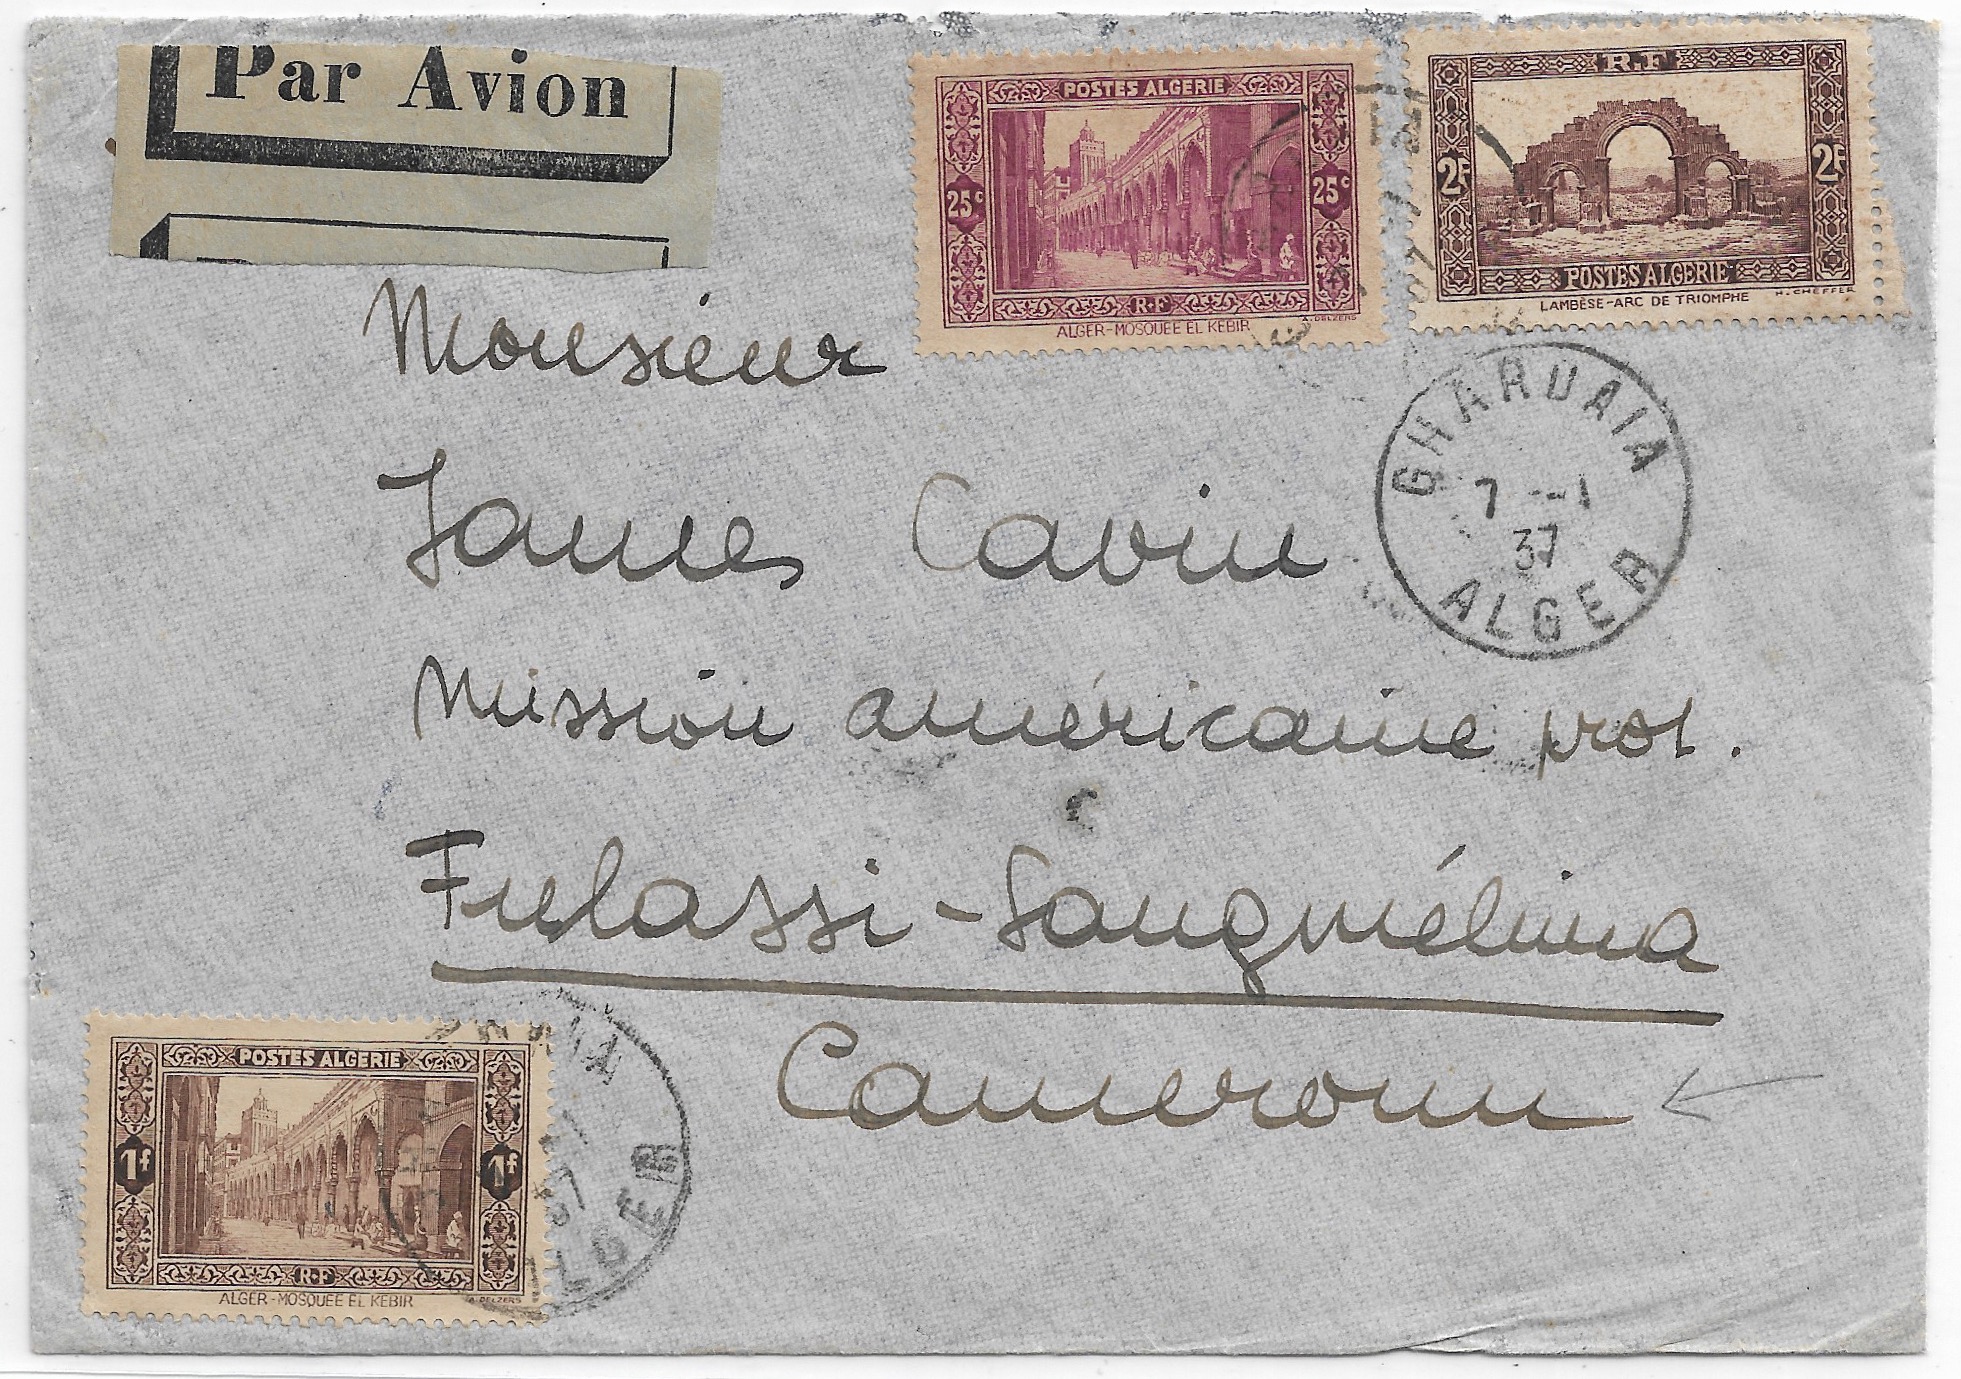 Par Avion
POSTES ALGERIE
25c 25c
R·F
ALGER-MOSQUÉE EL KEBIR
A. DELZERS
R.F
2F 2F
POSTES ALGERIE
LAMBÈSE-ARC DE TRIOMPHE H. CHEFFER
GHARDAIA
7 -1
37
ALGER
Monsieur
James Cavin
Mission américaine prot.
Fulassi-Sangmélima
Cameroun
POSTES ALGERIE
1f 1f
R·F
ALGER-MOSQUÉE EL KEBIR
A. DELZERS
37
ALGER